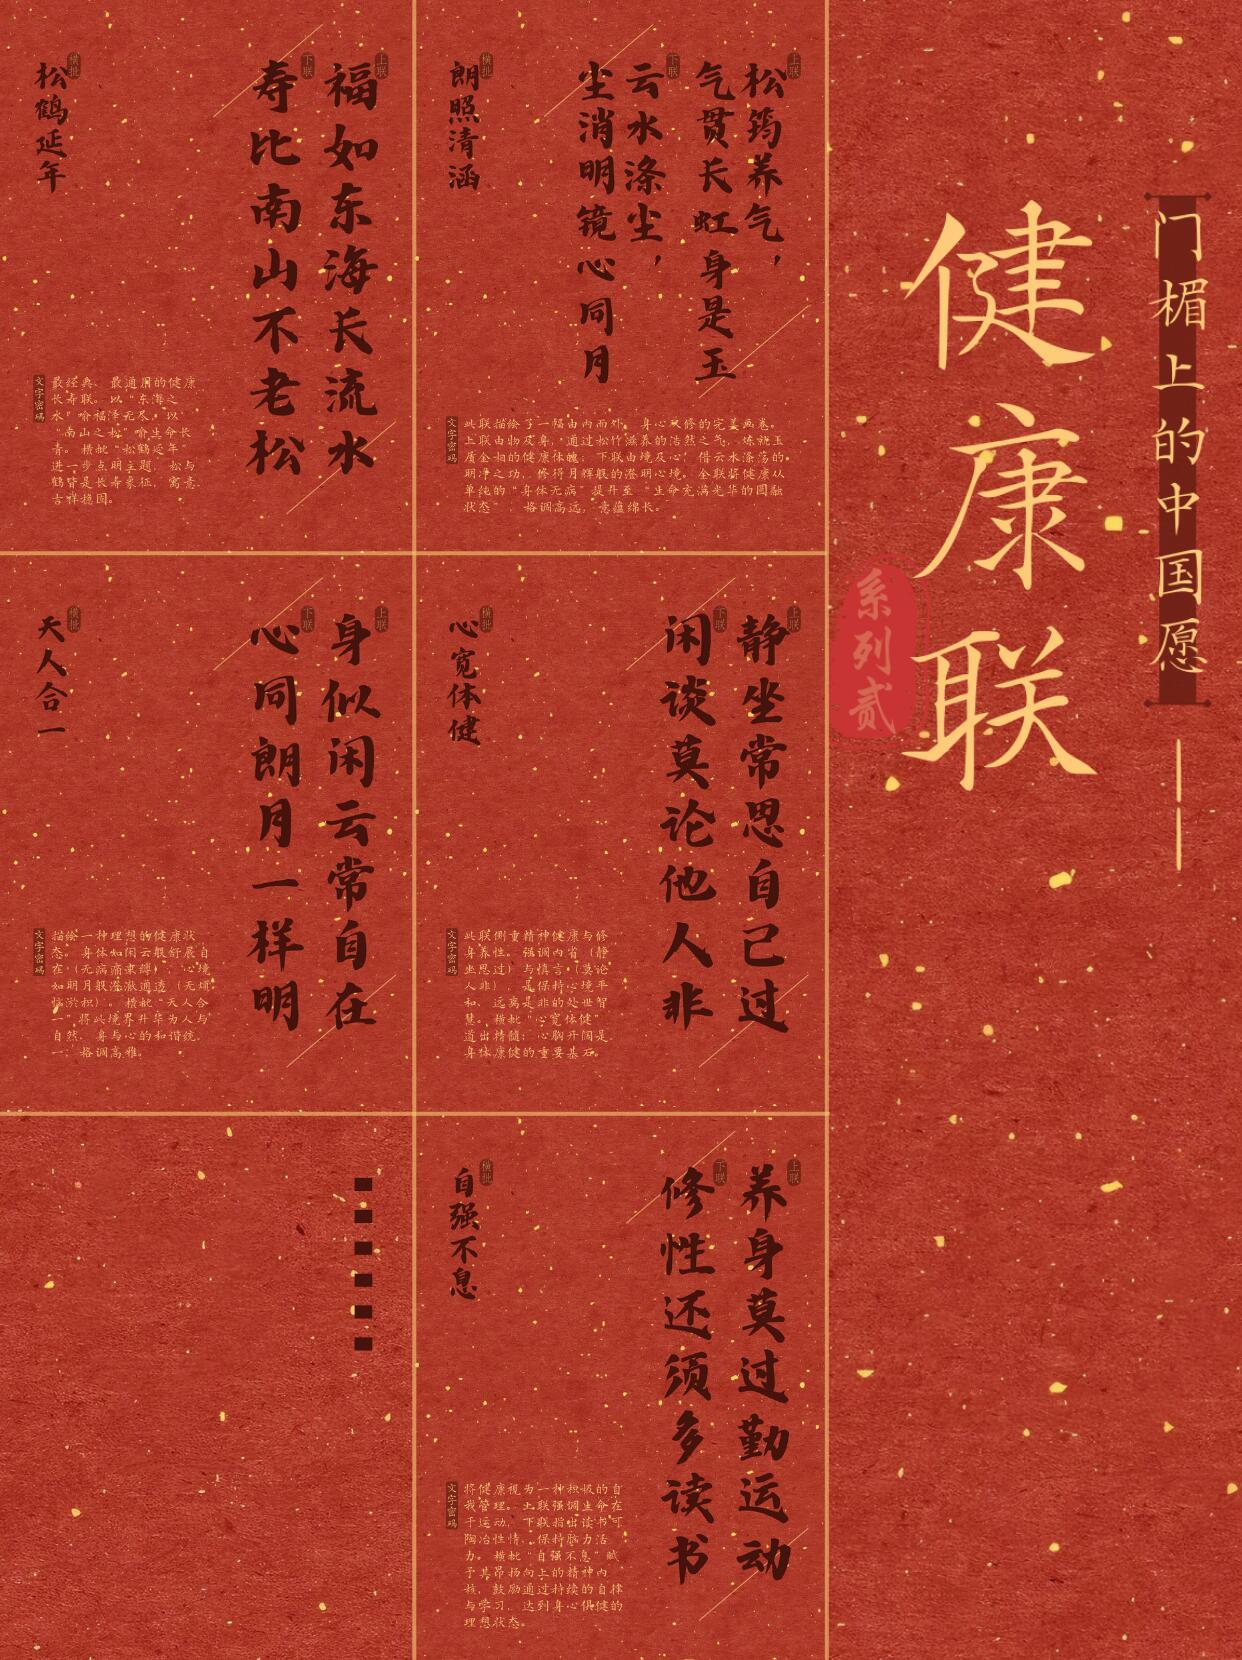 门楣上的中国愿——
健康联
系列贰
上联
松筠养气，
气贯长虹身是玉
下联
云水涤尘，
尘消明镜心同月
横批
朗照清涵
文字密码
此联描绘了一幅由内而外、身心双修的完美画卷。
上联由物及身，通过松竹滋养的浩然之气，炼就玉
质金相的健康体魄；下联由境及心，借云水涤荡的
明净之功，修得月辉般的澄明心境。全联将健康从
单纯的“身体无病”提升至“生命充满光华的圆融
状态”，格调高远，意蕴绵长。
上联
福如东海长流水
下联
寿比南山不老松
横批
松鹤延年
文字密码
最经典、最通用的健康
长寿联。以“东海之
水”喻福泽无尽，以
“南山之松”喻生命长
青。横批“松鹤延年”
进一步点明主题，松与
鹤皆是长寿象征，寓意
吉祥稳固。
上联
静坐常思自己过
下联
闲谈莫论他人非
横批
心宽体健
文字密码
此联侧重精神健康与修
身养性。强调内省（静
坐思过）与慎言（莫论
人非），是保持心境平
和、远离是非的处世智
慧。横批“心宽体健”
道出精髓：心胸开阔是
身体康健的重要基石。
上联
身似闲云常自在
下联
心同朗月一样明
横批
天人合一
文字密码
描绘一种理想的健康状
态。身体如闲云般舒展自
在（无病痛束缚），心境
如明月般澄澈通透（无烦
恼淤积）。横批“天人合
一”将此境界升华为人与
自然、身与心的和谐统
一，格调高雅。
上联
养身莫过勤运动
下联
修性还须多读书
横批
自强不息
文字密码
将健康视为一种积极的自
我管理。上联强调生命在
于运动，下联指出读书可
陶冶性情、保持脑力活
力。横批“自强不息”赋
予其昂扬向上的精神内
核，鼓励通过持续的自律
与学习，达到身心俱健的
理想状态。